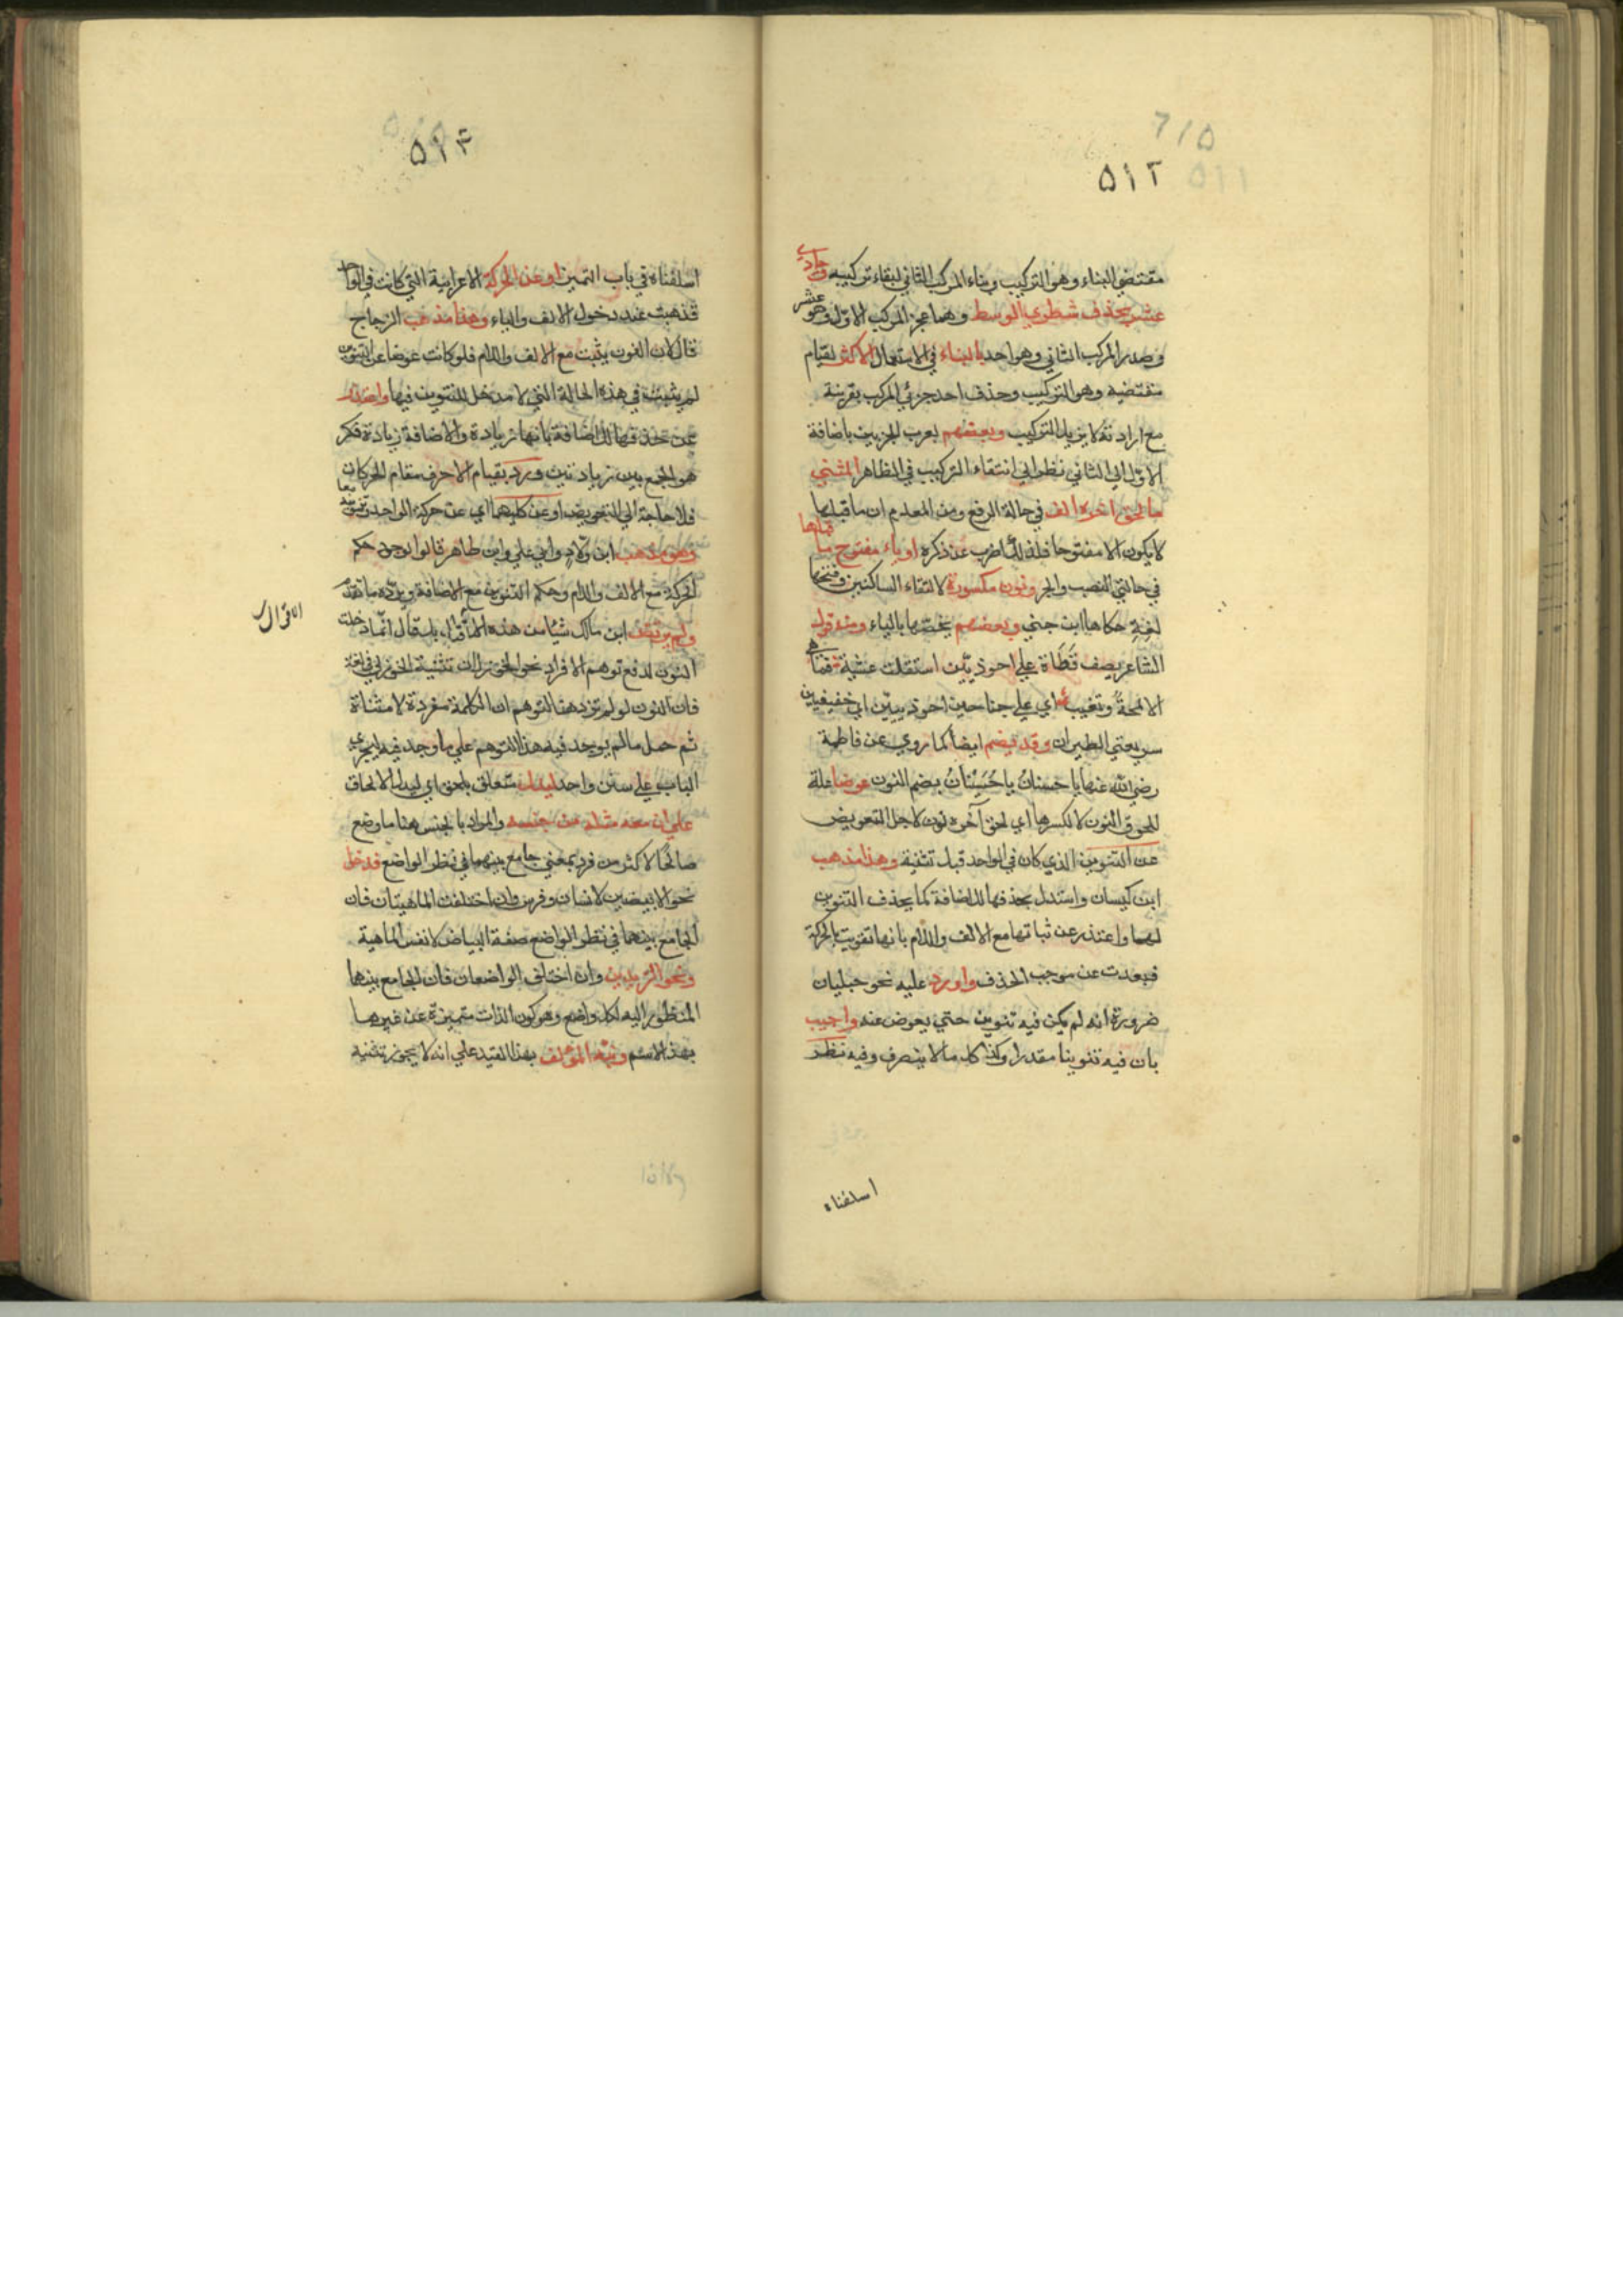 ٥١٢
مقتضي البناء وهو التركيب وبناء المركب الثاني لبقاء تركيبه وحادي
عشر بحذف شطري الوسط وهما عجز المركب الاول وهو عشر
وصدر المركب الثاني وهو احد بالبناء في الاستعمال الاكثر لقيام
مقتضيه وهو التركيب وحذف احد جزئي المركب بقرينة
مع ارادته لا يزيل التركيب وبعضهم يعرب الجزيين باضافة
الاول الي الثاني نظرا الي انتفاء التركيب في الظاهر المثني
ما لحق آخره الف في حالة الرفع ومن المعلوم ان ما قبلها
لا يكون الا مفتوحا فلذلك اضرب عن ذكره او ياء مفتوح ما قبلها
في حالتي النصب والجر ونون مكسورة لالتقاء الساكنين وفتحها
لغة حكاها ابن جني وبعضهم يخصها بالياء ومنه قول
الشاعر يصف قَطَاة علي احوذيّين استقلت عشية فما هي
الا لمحةٌ وتغيب اي علي جناحين احوذييّن اي خفيفين
سريعتي الطيران وقد يضم ايضا كما روي عن فاطمة
رضي الله عنها يا حسنانُ يا حُسَيْنانُ بضم النون عوضا علة
للحوق النون لا لكسرها اي لحق آخره نون لاجل التعويض
عن التنوين الذي كان في الواحد قبل تثنية وهذا مذهب
ابن كيسان واستدل بحذفها للاضافة كما يحذف التنوين
لها واعتذر عن ثباتها مع الالف واللام بانها تقويت بالحركة
فبعدت عن موجب الحذف واورد عليه نحو حبليان
ضرورة انه لم يكن فيه تنوين حتي يعوض عنه واجيب
بان فيه تنوينا مقدرا وكذا كل ما لا ينصرف وفيه نظر
اسلفناه
٥١٣
اسلفناه في باب التمييز او عن الحركة الاعرابية التي كانت في الواحد
فذهبت عند دخول الالف والياء وهذا مذهب الزجاج
قال لان النون يثبت مع الالف واللام فلو كانت عوضا عن التنوين
لم يثبت في هذه الحالة التي لا مدخل للتنوين فيها واعتذر
عن حذفها للاضافة بانها زيادة والاضافة زيادة فكر
هو الجمع بين زيادتين ورد بقيام الاحرف مقام الحركات
فلا حاجة الي التعويض او عن كليهما اي عن حركة الواحد وتنوينه معا
وهو مذهب ابن ولاد وابي علي وابن طاهر قالوا لوجود حكم
الحركة مع الالف واللام وحكم التنوين مع الاضافة ويرده ما تقدم
ولم يرتض ابن مالك شيئا من هذه الاقوال بل قال انما دخلت
النون لدفع توهم الافراد نحو الخوزلان تثنية الخوزلي في لغة
فان النون لو لم تزد هنا لتوهم ان الكلمة مفردة لا مثناة
ثم حمل ما لم يوجد فيه هذا التوهم علي ما وجد فيه ليجري
الباب علي سنن واحد ليدل متعلق بلحق اي ليدل الالحاق
علي ان معه مثله من جنسه والمراد بالجنس هنا ما وضع
صالحًا لاكثر من فرد بمعني جامع بينهما في نظر الواضع فدخل
نحو الابيضين لانسان وفرس وان اختلفت الماهيتان فان
الجامع بينهما في نظر الواضع صفة البياض لا نفس الماهية
ونحو الزيدين وان اختلف الواضعان فان الجامع بينها
المنظور اليه لكل واضع وهو كون الذات متميزة عن غيرها
بهذا الاسم ونبّه المؤلف بهذا القيد علي انه لا يجوز تثنية
الاقوال